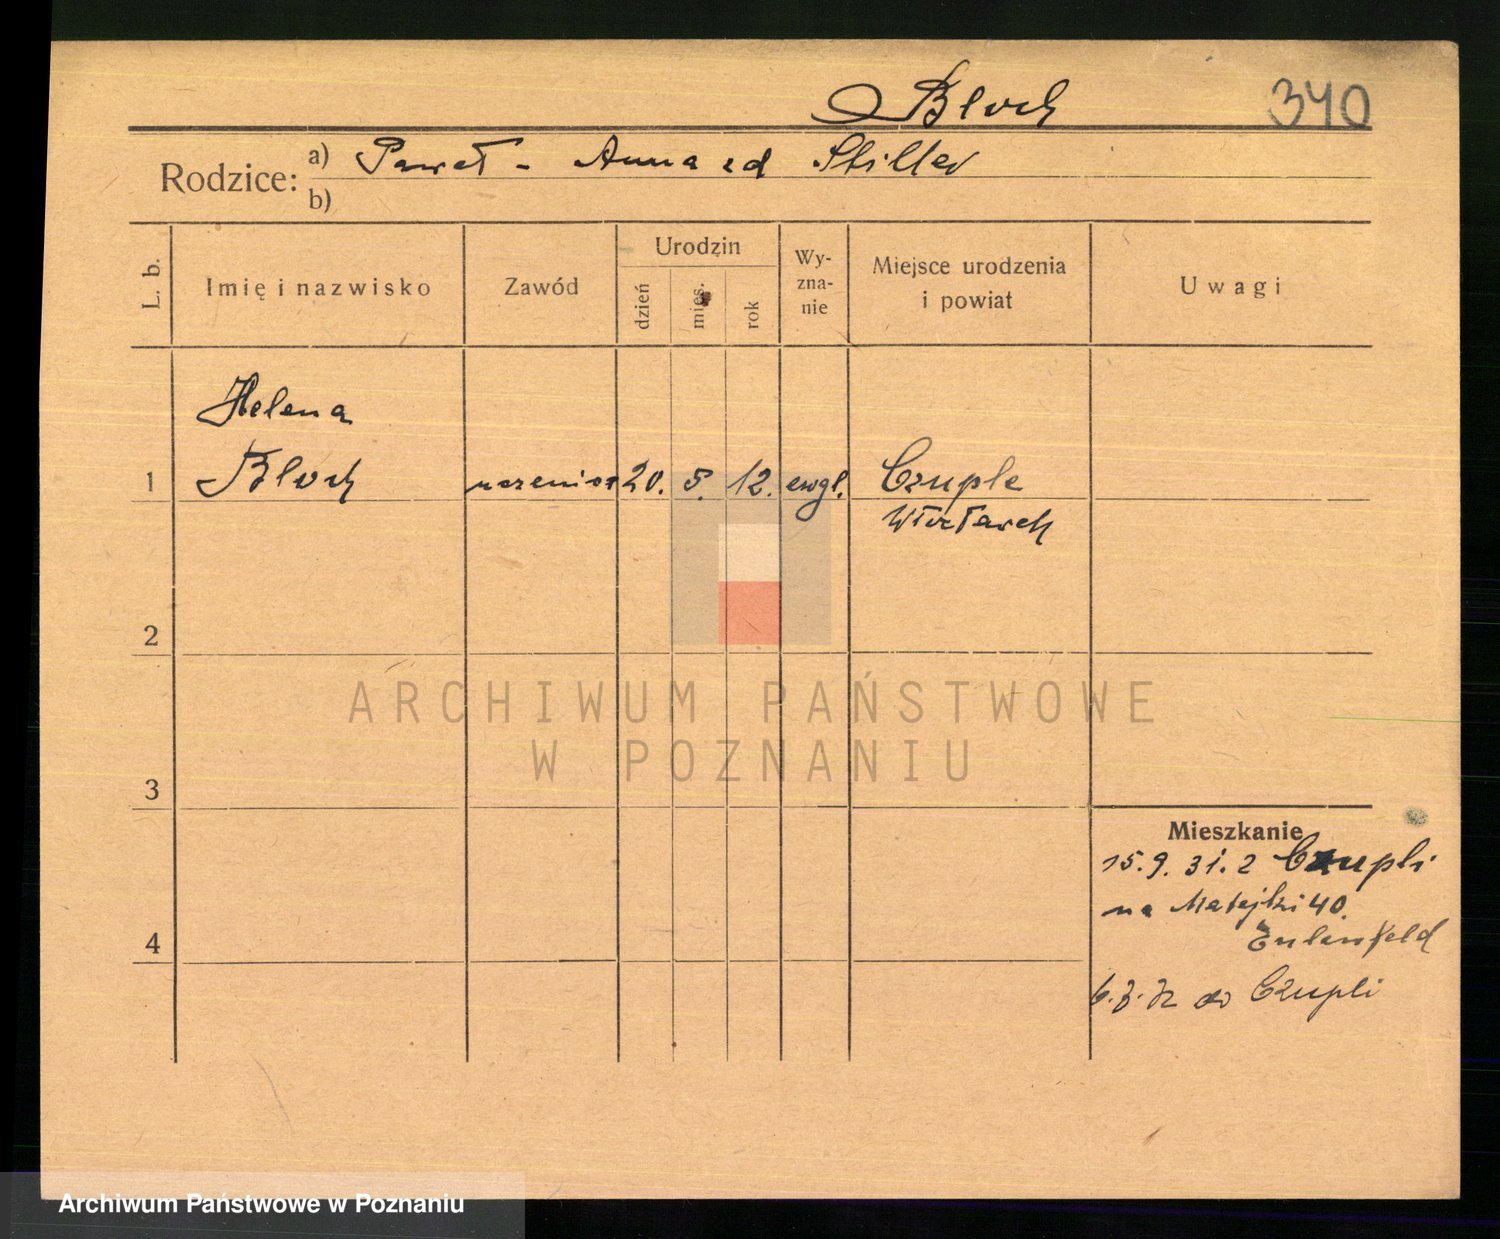 Bloch 340
Rodzice: a) Paweł - Anna zd Stiller
b)
L. b. Imię i nazwisko Zawód Urodzin dzień mies. rok Wy-zna-nie Miejsce urodzenia i powiat Uwagi
Helena
1 Bloch uczenica 20. 5. 12. ewgl. Czuple
Włocławek
2
ARCHIWUM PAŃSTWOWE
W POZNANIU
3
Mieszkanie
15.9. 31. z Czupli
na Matejki 40.
Eulenfeld
4
do Czupli
Archiwum Państwowe w Poznaniu